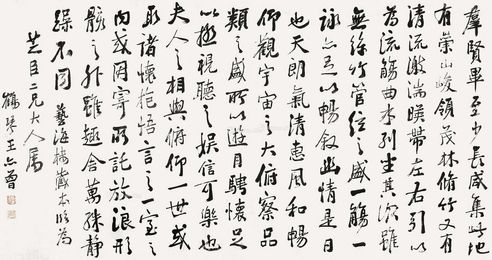 群賢畢至少長咸集此地
有崇山峻領茂林脩竹又有
清流激湍暎帶左右引以
為流觴曲水列坐其次雖
無絲竹管弦之盛一觴一
詠亦足以暢敘幽情是日
也天朗氣清惠風和暢
仰觀宇宙之大俯察品
類之盛所以遊目騁懷足
以極視聽之娛信可樂也
夫人之相與俯仰一世或
取諸懷抱悟言一室之
內或因寄所託放浪形
骸之外雖趣舍萬殊靜
躁不同 藝海樓藏本臨為
芝臣二兄大人屬
鶴琴王亦曾